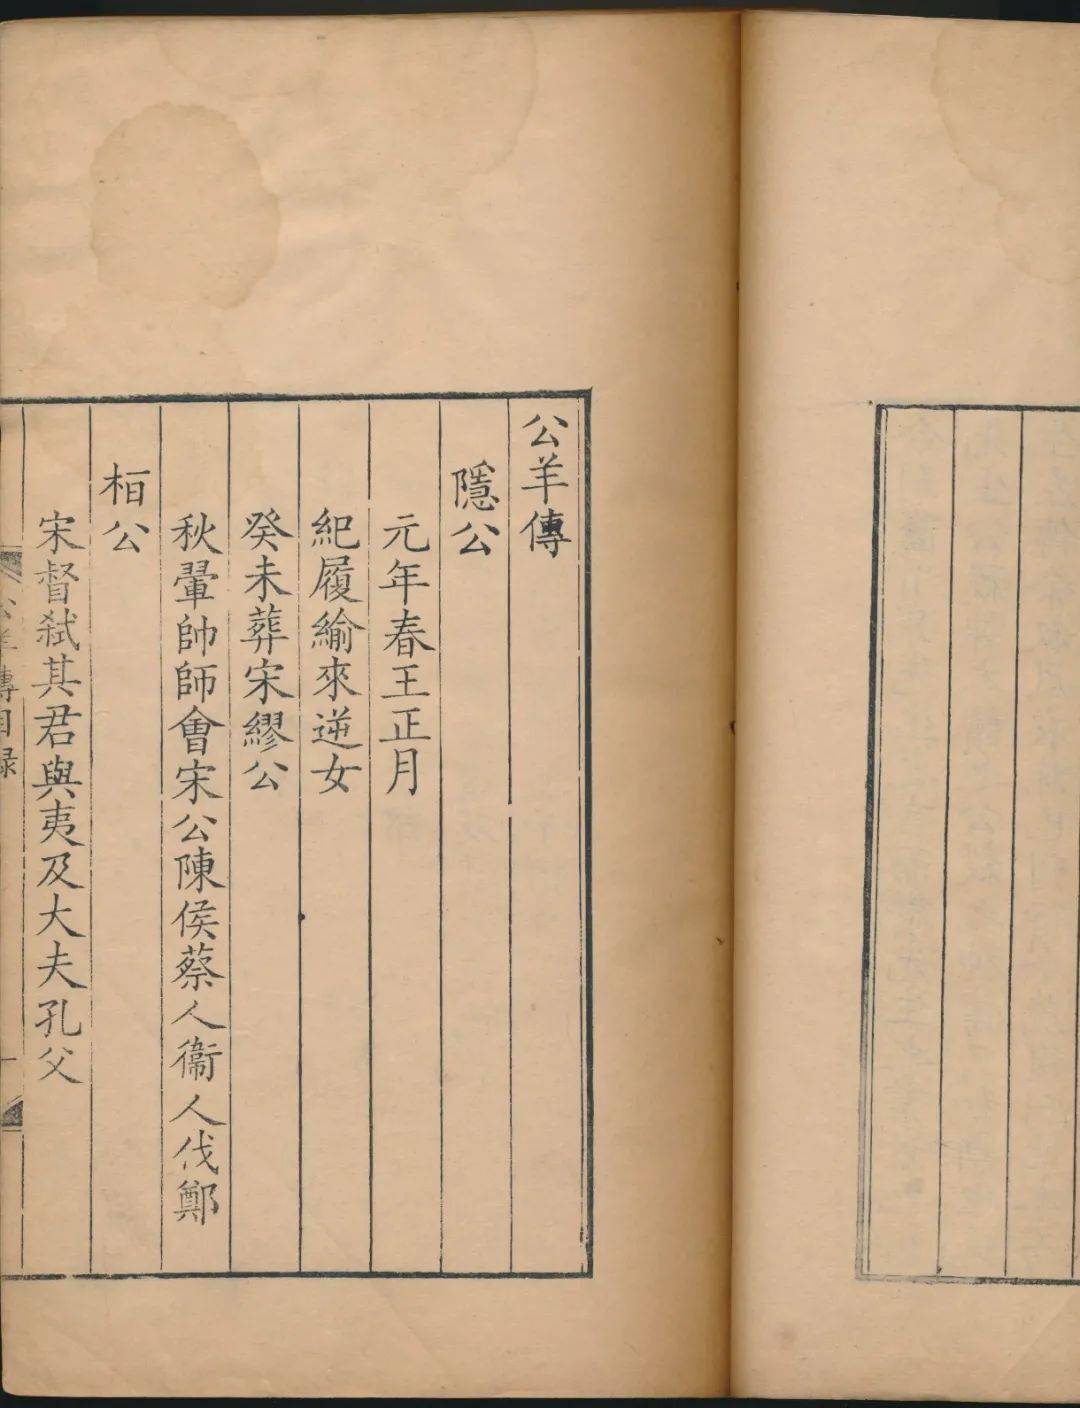 公羊傳
隱公
元年春王正月
紀履緰來逆女
癸未葬宋繆公
秋翬帥師會宋公陳侯蔡人衞人伐鄭
桓公
宋督弑其君與夷及大夫孔父
公羊傳目録